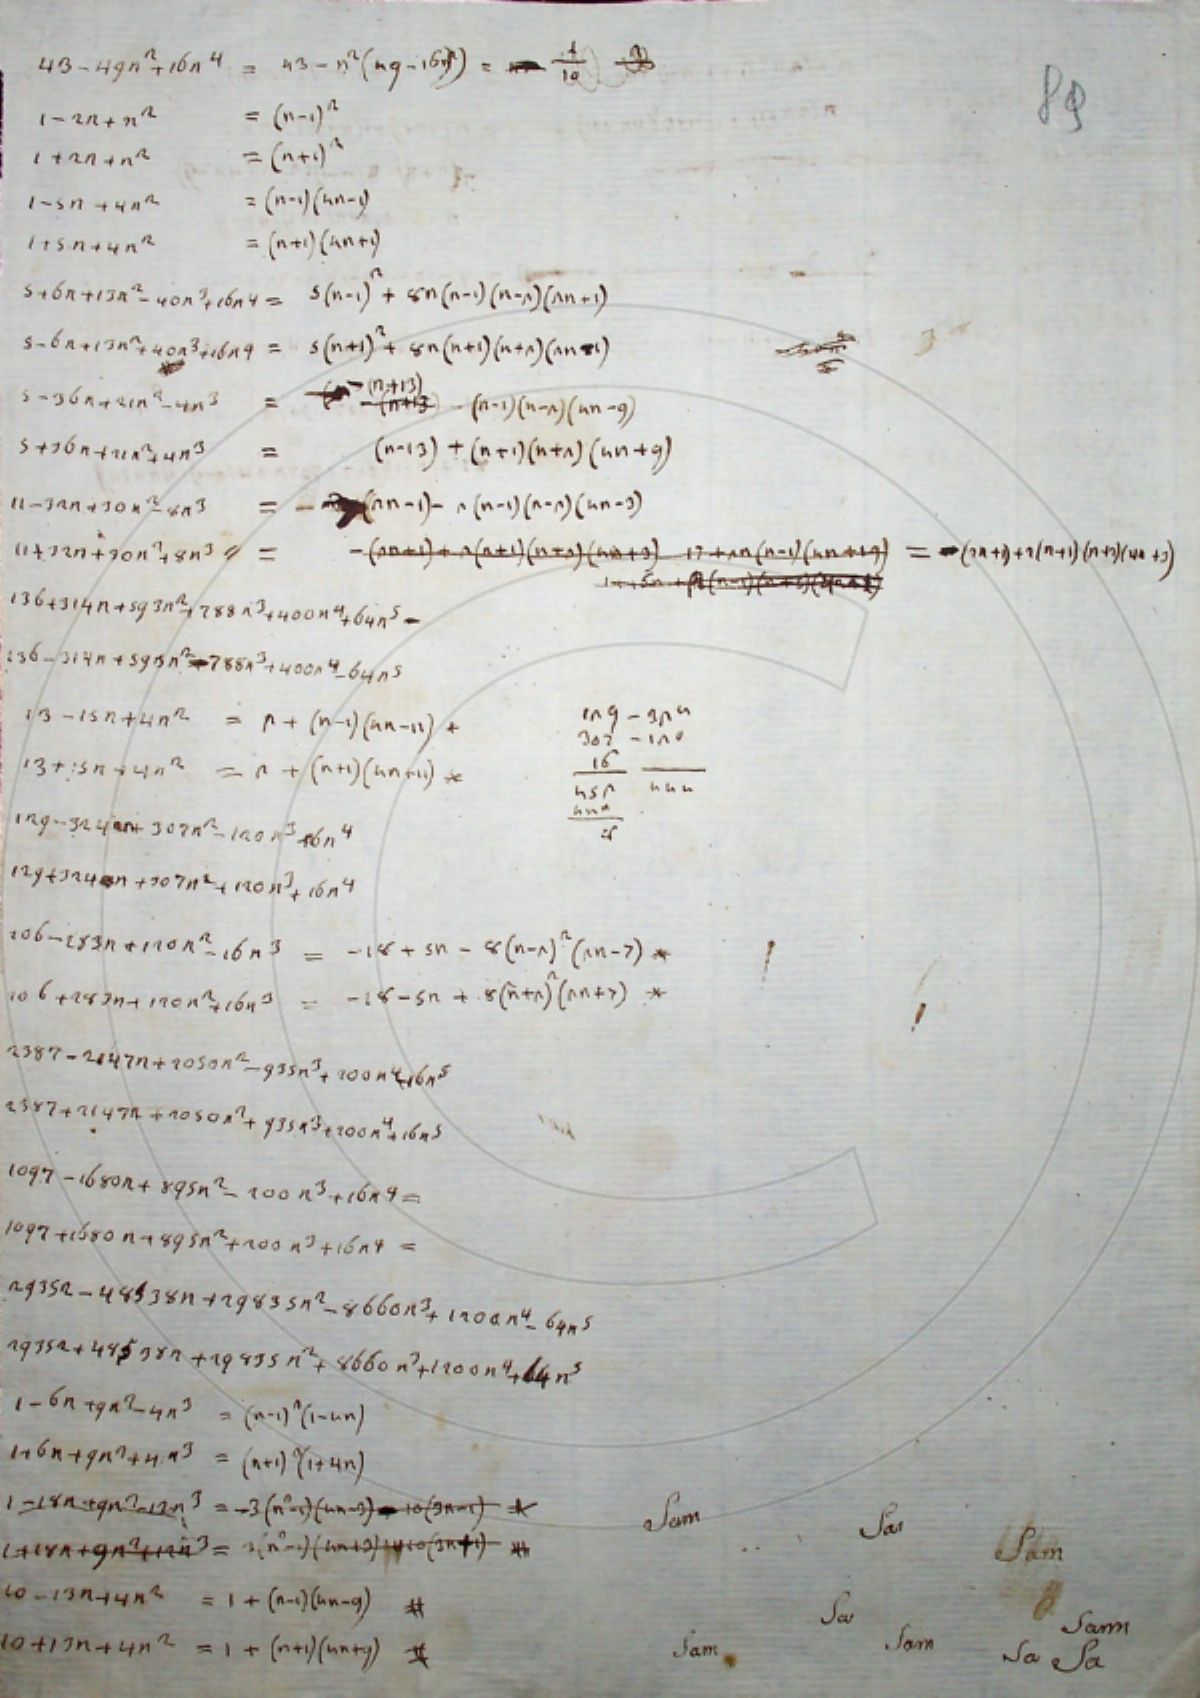 43-49n²+16n⁴ = 43-n²(49-16n²) = 1/10
89
1-2n+n² = (n-1)²
1+2n+n² = (n+1)²
1-5n+4n² = (n-1)(4n-1)
1+5n+4n² = (n+1)(4n+1)
5+6n+13n²-40n³+16n4 = 5(n-1)²+8n(n-1)(n-2)(2n+1)
5-6n+13n²+40n³+16n4 = 5(n+1)²+8n(n+1)(n+2)(2n-1)
5-36n+21n²-4n³ = -(n+13) -(n-1)(n-2)(4n-9)
5+36n+21n²+4n³ = (n-13)+(n+1)(n+2)(4n+9)
11-32n+30n²-8n³ = -(2n-1)-2(n-1)(n-2)(4n-3)
11+32n+30n²+8n³ = -(2n+1)+2(n+1)(n+2)(4n+3) 17+2n(n-1)(4n+19) = -(2n+1)+2(n+1)(n+2)(4n+3)
136+314n+593n²+788n³+400n⁴+64n⁵-
136-314n+593n²-788n³+400n⁴-64n⁵
13-15n+4n² = 2+(n-1)(4n-11) +
13+15n+4n² = 2+(n+1)(4n+11) *
129-324
307-120
16
452 444
444
8
129-324n+307n²-120n³+16n⁴
129+324n+307n²+120n³+16n⁴
206-283n+120n²-16n³ = -18+5n-8(n-2)²(2n-7) *
206+283n+120n²+16n³ = -18-5n+8(n+2)²(2n+7) *
2387-2147n+2050n²-935n³+200n⁴+16n⁵
2387+2147n+2050n²+935n³+200n⁴+16n⁵
1097-1680n+895n²-200n³+16n4=
1097+1680n+895n²+200n³+16n4=
29352-48538n+29835n²-8660n³+1200n⁴-64n⁵
29352+48538n+29835n²+8660n³+1200n⁴+64n⁵
1-6n+9n²-4n³ = (n-1)²(1-4n)
1+6n+9n²+4n³ = (n+1)²(1+4n)
1-18n+9n²-12n³ = -3(n²-1)(4n-3)-10(3n-1) *
1+18n+9n²+12n³ = 3(n²-1)(4n+3)+10(3n+1) *
10-13n+4n² = 1+(n-1)(4n-9) *
10+13n+4n² = 1+(n+1)(4n+9) *
Sam Sar
Sam
Sar Sam
Sam Sam Sa Sa